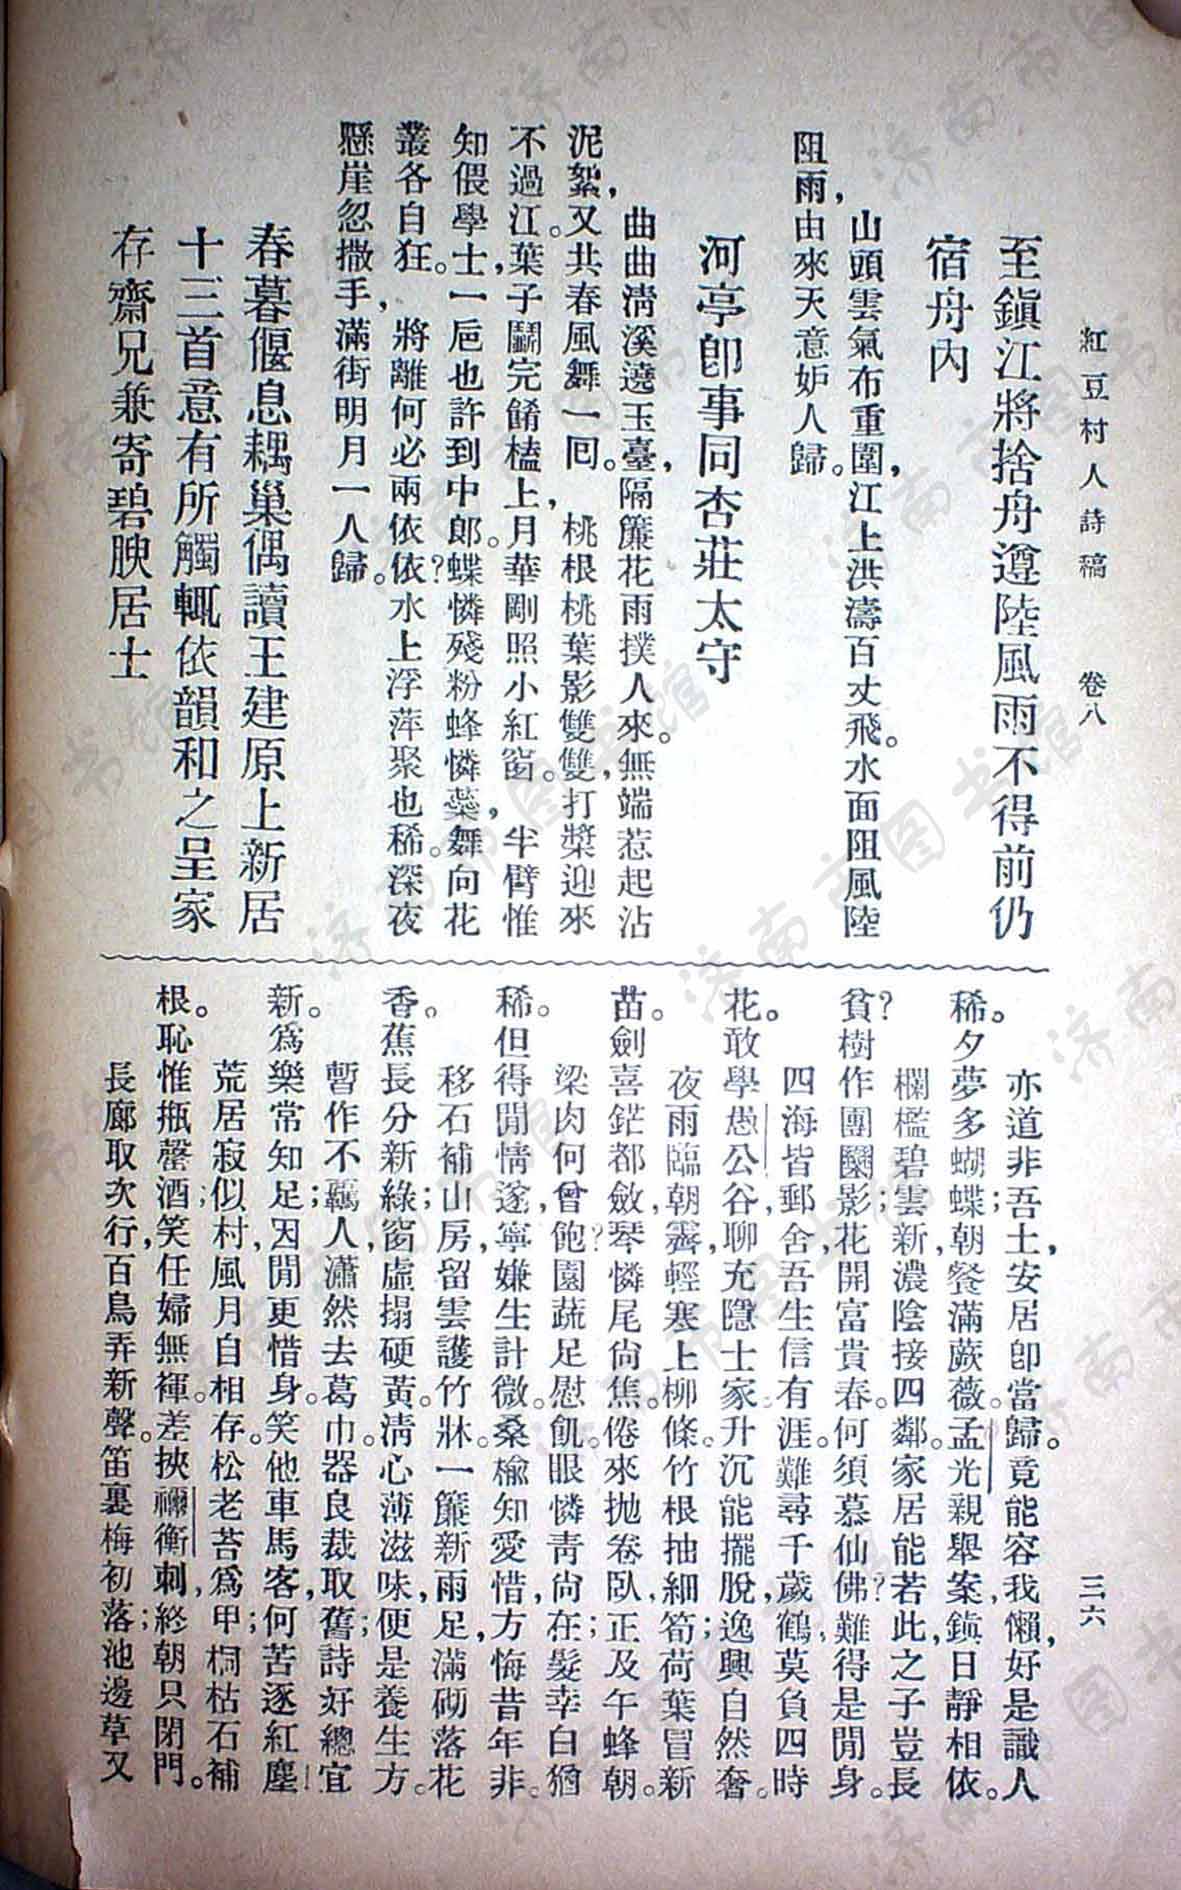 紅豆村人詩稿　卷八　三六
至鎮江將捨舟遵陸風雨不得前仍
宿舟內
山頭雲氣布重圍，江上洪濤百丈飛。水面阻風陸
阻雨，由來天意妒人歸。
河亭卽事同杏莊太守
曲曲淸溪遶玉臺，隔簾花雨撲人來。無端惹起沾
泥絮，又共春風舞一回。　桃根桃葉影雙雙，打槳迎來
不過江。葉子鬭完餚榼上，月華剛照小紅窗。　半臂惟
知偎學士，一巵也許到中郞？蝶憐殘粉蜂憐蘂，舞向花
叢各自狂。　將離何必兩依依，水上浮萍聚也稀。深夜
懸崖忽撒手，滿街明月一人歸。
春暮偃息耦巢偶讀王建原上新居
十三首意有所觸輒依韻和之呈家
存齋兄兼寄碧腴居士
亦道非吾土，安居卽當歸。竟能容我懶，好是識人
稀。夕夢多蝴蝶；朝餐滿蕨薇。孟光親舉案，鎭日靜相依。
欄檻碧雲新，濃陰接四鄰。家居能若此，之子豈長
貧？樹作團圞影；花開富貴春。何須慕仙佛？難得是閒身。
四海皆郵舍，吾生信有涯。難尋千歲鶴，莫負四時
花。敢學愚公谷，聊充隱士家。升沉能擺脫，逸興自然奢。
夜雨臨朝霽，輕寒上柳條。竹根抽細筍；荷葉冒新
苗。劍喜鋩都斂，琴憐尾尙焦。倦來拋卷臥，正及午蜂朝。
梁肉何曾飽？園蔬足慰飢。眼憐靑尙在；髮幸白猶
稀。但得閒情遂，寧嫌生計微。桑楡知愛惜，方悔昔年非。
移石補山房，留雲護竹牀。一簾新雨足，滿砌落花
香。蕉長分新綠；窗虛搨硬黃。淸心薄滋味，便是養生方。
暫作不羈人，瀟然去葛巾。器良裁取舊；詩好總宜
新。爲樂常知足；因閒更惜身。笑他車馬客，何苦逐紅塵！
荒居寂似村，風月自相存。松老苔爲甲；桐枯石補
根。恥惟甁罄酒；笑任婦無褌。差挾禰衡刺，終朝只閉門。
長廊取次行，百鳥弄新聲。笛裏梅初落；池邊草又